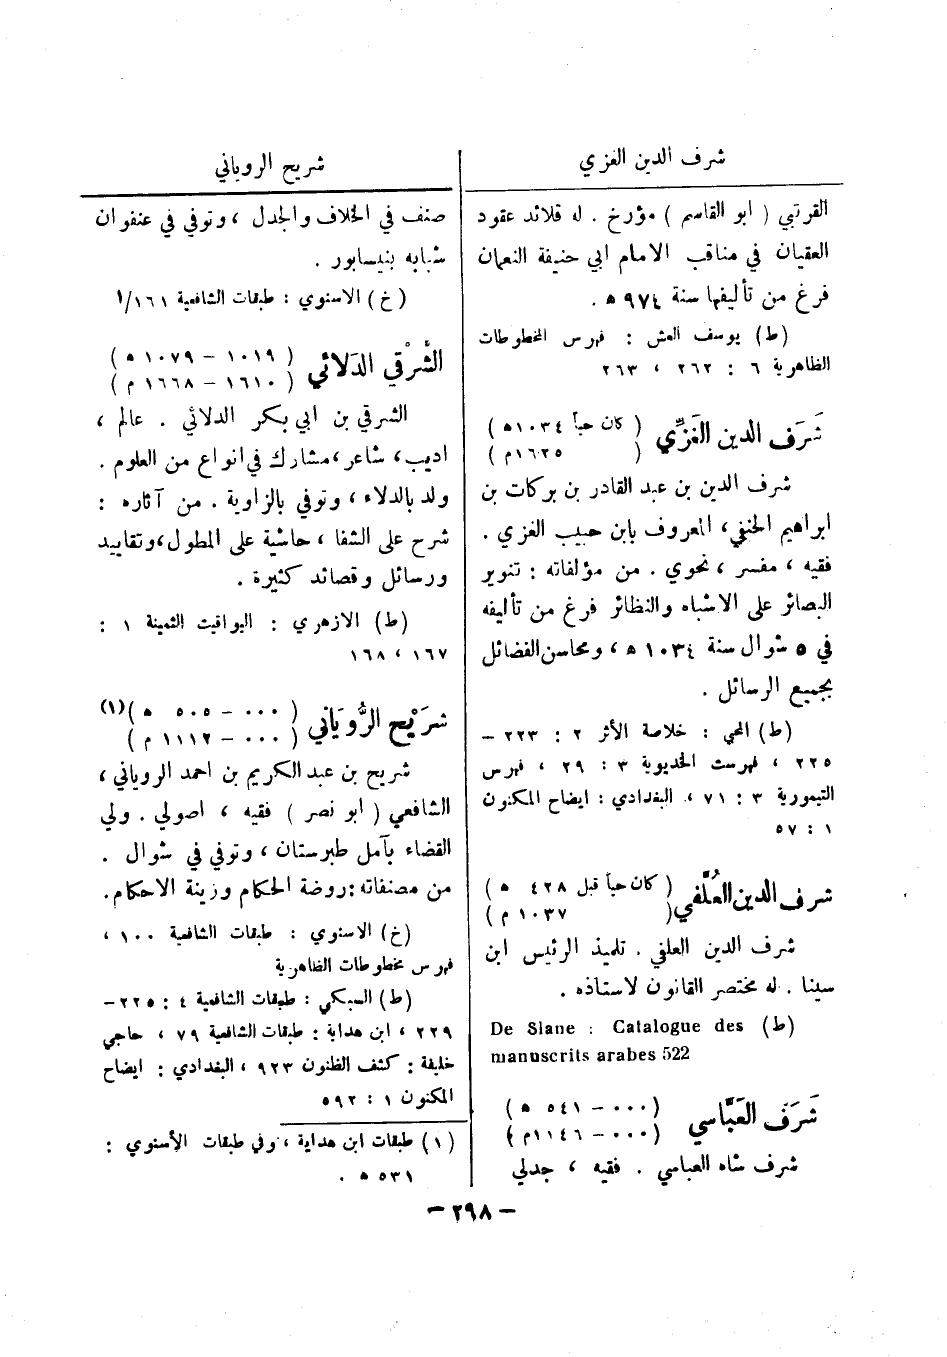 شرف الدين الغزي
القرتبي ( ابو القاسم ) مؤرخ . له قلائد عقود
العقيان في مناقب الامام ابي حنيفة النعمان
فرغ من تأليفها سنة ٩٧٤ ه .
(ط) يوسف العش : فهرس المخطوطات
الظاهرية ٦ : ٢٦٢ ، ٢٦٣
شَرَف الدين الغَزِّي ( كان حياً ١٠٣٤ه )
( ١٦٢٥م )
شرف الدين بن عبد القادر بن بركات بن
ابراهيم الحنفي، المعروف بابن حبيب الغزي .
فقيه ، مفسر ، نحوي . من مؤلفاته : تنوير
البصائر على الاشباه والنظائر فرغ من تأليفه
في ٥ شوال سنة ١٠٣٤ ه ، ومحاسن الفضائل
بجميع الرسائل .
(ط) المحبي : خلاصة الأثر ٢ : ٢٢٣ –
٢٢٥ ، فهرست الخديوية ٣ : ٢٩ ، فهرس
التيمورية ٣ : ٧١ ، البغدادي : ايضاح المكنون
١ : ٥٧
شرف الدين العُلَفي ( كان حياً قبل ٤٢٨ ه )
( ١٠٣٧ م )
شرف الدين العلفي . تلميذ الرئيس ابن
سينا . له مختصر القانون لاستاذه .
(ط) De Slane : Catalogue des
manuscrits arabes 522
شَرَف العَبَّاسي ( ٠٠٠ – ٥٤١ ه )
( ٠٠٠ – ١١٤٦م )
شرف شاه العباسي . فقيه ، جدلي
شريح الروياني
صنف في الخلاف والجدل ، وتوفي في عنفوان
شبابه بنيسابور .
(خ) الاسنوي : طبقات الشافعية ١٦١/١
الشَّرْقي الدلائي ( ١٠١٩ – ١٠٧٩ ه )
( ١٦١٠ – ١٦٦٨ م )
الشرقي بن ابي بكر الدلائي . عالم ،
اديب، شاعر ،مشارك في انواع من العلوم .
ولد بالدلاء ، وتوفي بالزاوية . من آثاره :
شرح على الشفا ، حاشية على المطول،وتقاييد
ورسائل وقصائد كثيرة .
(ط) الازهري : اليواقيت الثمينة ١ :
١٦٧ ، ١٦٨
شريْح الرُّوَيَاني ( ٠٠٠ – ٥٠٥ ه )(١)
( ٠٠٠ – ١١١٢ م )
شريح بن عبد الكريم بن احمد الروياني ،
الشافعي ( ابو نصر ) فقيه ، اصولي . ولي
القضاء بآمل طبرستان ، وتوفي في شوال .
من مصنفاته: روضة الحكام وزينة الاحكام.
(خ) الاسنوي : طبقات الشافعية ١٠٠ ،
فهرس مخطوطات الظاهرية
(ط) السبكي : طبقات الشافعية ٤ : ٢٢٥ –
٢٢٩ ، ابن هداية : طبقات الشافعية ٧٩ ، حاجي
خليفة : كشف الظنون ٩٢٣ ، البغدادي : ايضاح
المكنون ١ : ٥٩٢
(١) طبقات ابن هداية ، وفي طبقات الأسنوي :
٥٣١ ه .
– ٢٩٨ –